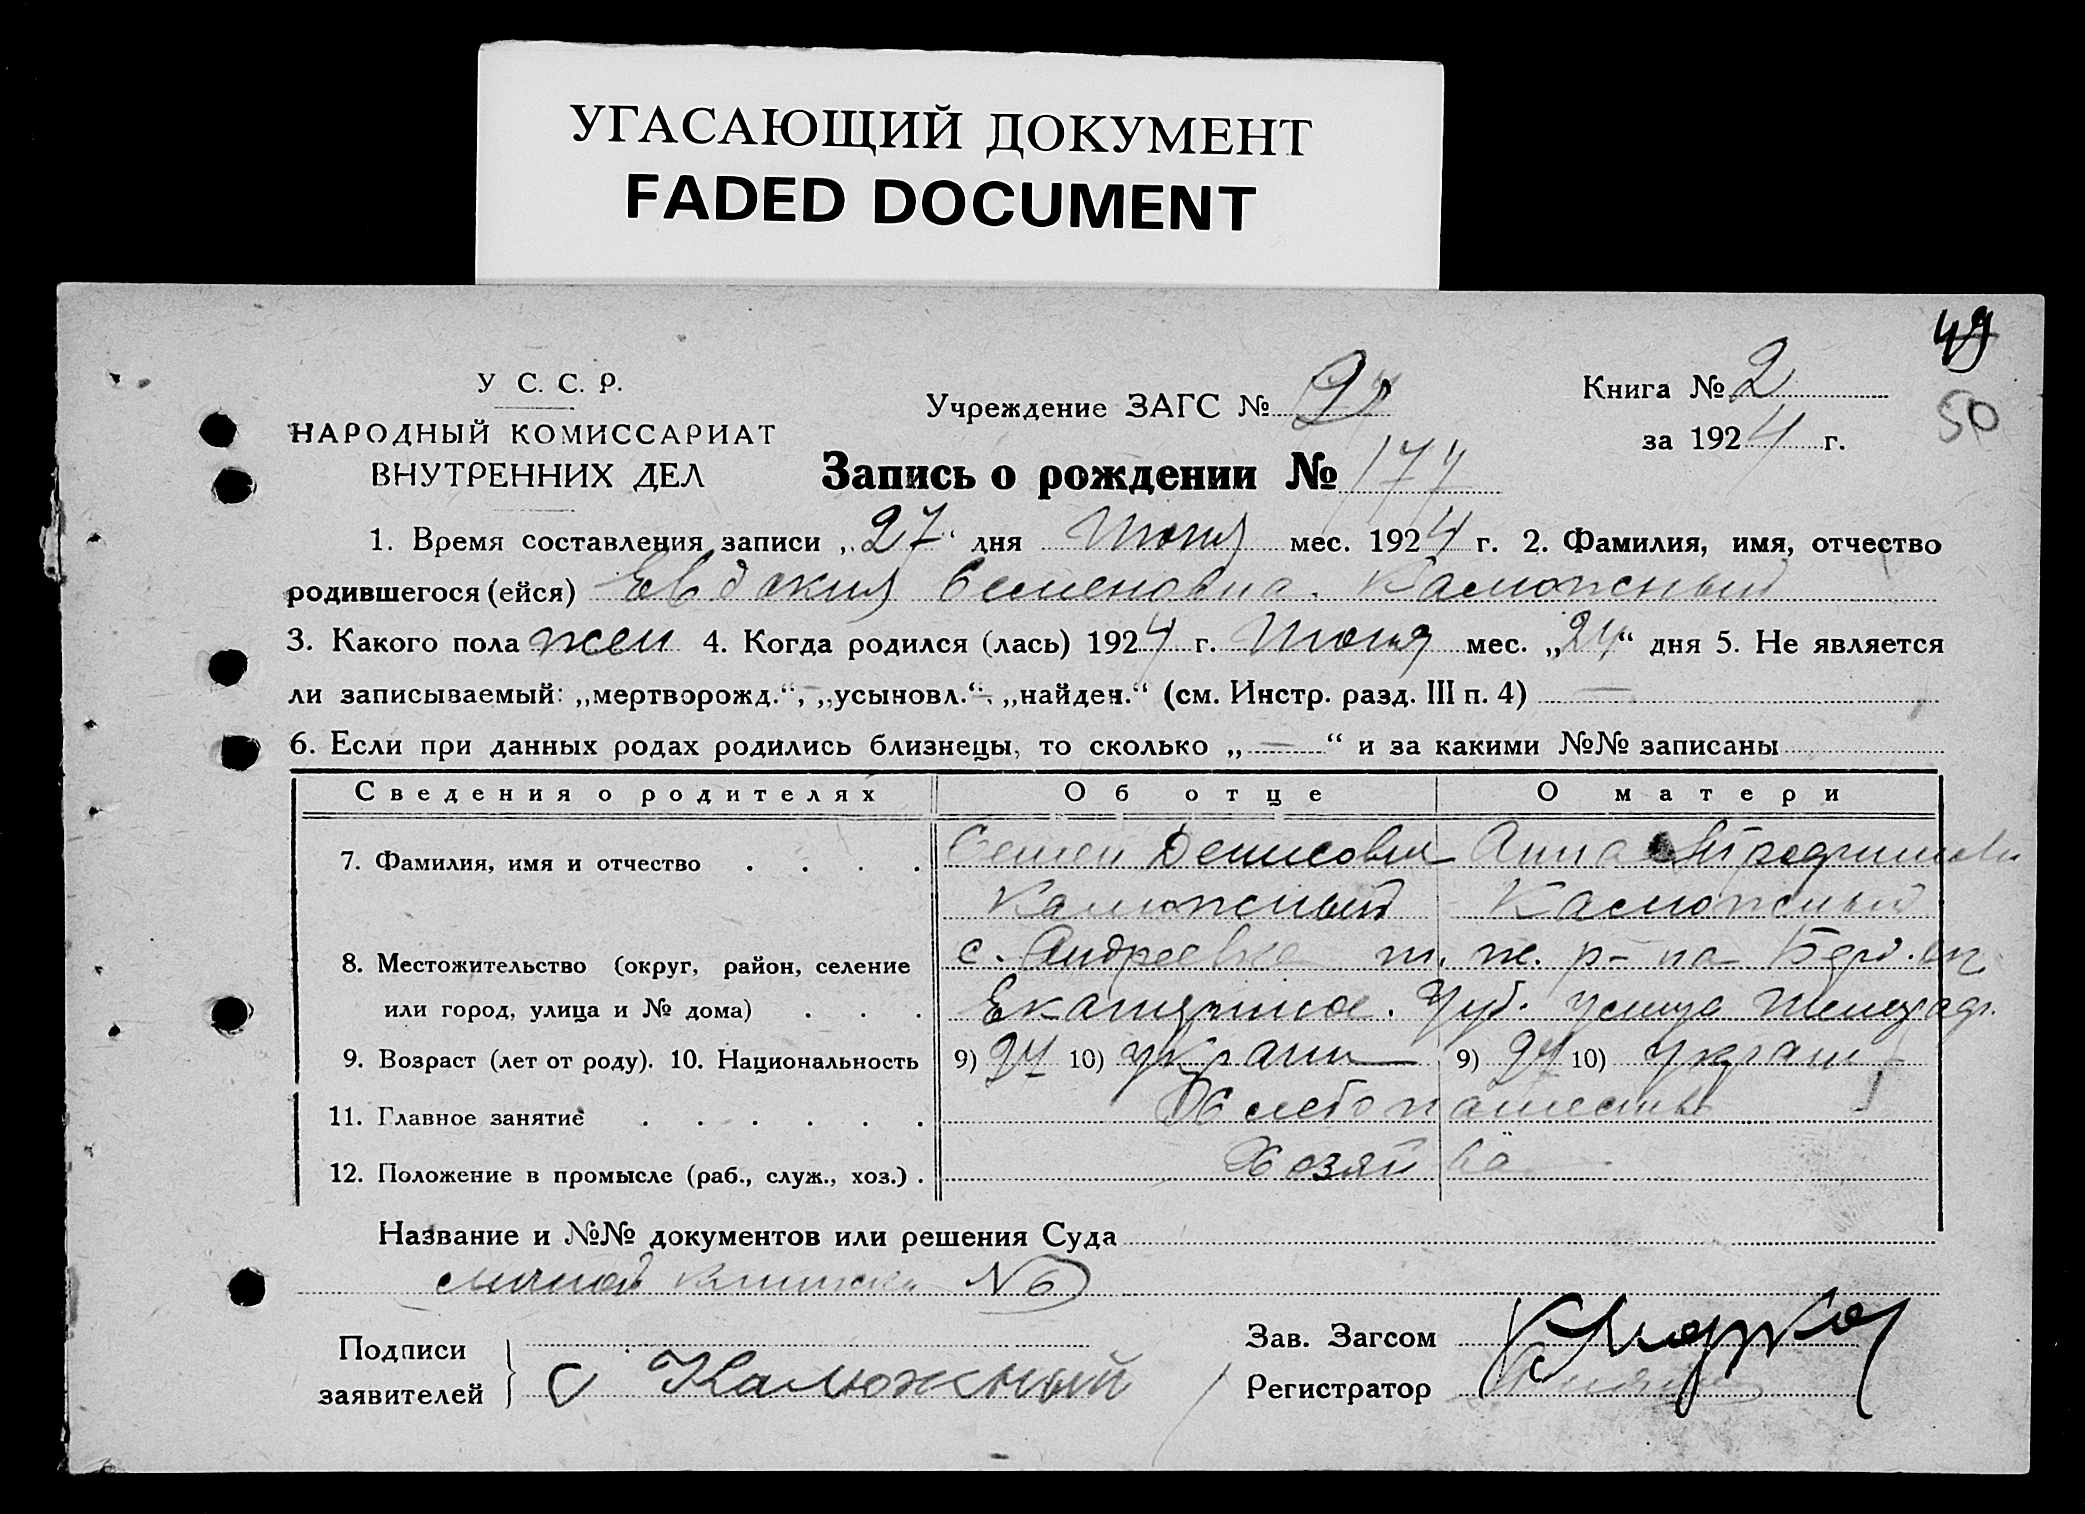 УГАСАЮЩИЙ ДОКУМЕНТ
FADED DOCUMENT
49
50
У С. С. Р.
НАРОДНЫЙ КОМИССАРИАТ
ВНУТРЕННИХ ДЕЛ
Учреждение ЗАГС №
Книга № 2
за 1924 г.
Запись о рождении № 177
1. Время составления записи „27“ дня Июня мес. 1924 г. 2. Фамилия, имя, отчество
родившегося (ейся) Евдокия Семеновна Калюжный
3. Какого пола жен 4. Когда родился (лась) 1924 г. Июня мес. „24“ дня 5. Не является
ли записываемый: „мертворожд.“, „усыновл.“, „найден.“ (см. Инстр. разд. III п. 4) —
6. Если при данных родах родились близнецы, то сколько „—“ и за какими №№ записаны
Сведения о родителях Об отце О матери
7. Фамилия, имя и отчество . . . . Семен Денисович Анна Трофимовн
Калюжный Калюжный
8. Местожительство (округ, район, селение с. Андреевка т. ж. р-на Берд. ок.
или город, улица и № дома) . . . Екатерино. Губ. улица
9. Возраст (лет от роду). 10. Национальность 9) 24 10) украин 9) 24 10) украин
11. Главное занятие . . . . . . Хлебопашество
12. Положение в промысле (раб., служ., хоз.) . Хозяйва
Название и №№ документов или решения Суда
личной книжка № 6
Подписи
заявителей } С Калюжный
Зав. Загсом
Регистратор